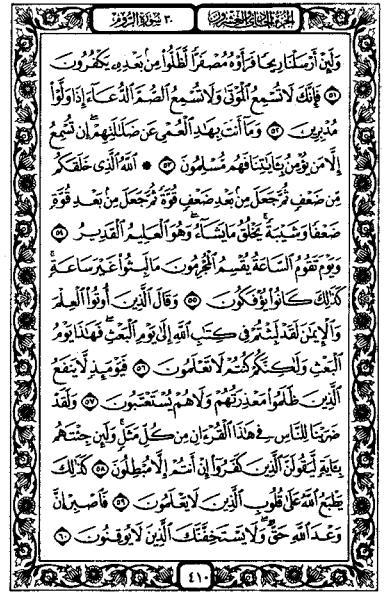 الجزء الحادي والعشرون ٣٠ سورة الروم
وَلَئِنْ أَرْسَلْنَا رِيحًا فَرَأَوْهُ مُصْفَرًّا لَّظَلُّوا۟ مِنۢ بَعْدِهِۦ يَكْفُرُونَ
٥١ فَإِنَّكَ لَا تُسْمِعُ ٱلْمَوْتَىٰ وَلَا تُسْمِعُ ٱلصُّمَّ ٱلدُّعَآءَ إِذَا وَلَّوْا۟
مُدْبِرِينَ ٥٢ وَمَآ أَنتَ بِهَـٰدِ ٱلْعُمْىِ عَن ضَلَـٰلَتِهِمْ ۖ إِن تُسْمِعُ
إِلَّا مَن يُؤْمِنُ بِـَٔايَـٰتِنَا فَهُم مُّسْلِمُونَ ٥٣ ۞ ٱللَّهُ ٱلَّذِى خَلَقَكُم
مِّن ضَعْفٍ ثُمَّ جَعَلَ مِنۢ بَعْدِ ضَعْفٍ قُوَّةً ثُمَّ جَعَلَ مِنۢ بَعْدِ قُوَّةٍ
ضَعْفًا وَشَيْبَةً ۚ يَخْلُقُ مَا يَشَآءُ ۖ وَهُوَ ٱلْعَلِيمُ ٱلْقَدِيرُ ٥٤
وَيَوْمَ تَقُومُ ٱلسَّاعَةُ يُقْسِمُ ٱلْمُجْرِمُونَ مَا لَبِثُوا۟ غَيْرَ سَاعَةٍ ۚ
كَذَٰلِكَ كَانُوا۟ يُؤْفَكُونَ ٥٥ وَقَالَ ٱلَّذِينَ أُوتُوا۟ ٱلْعِلْمَ
وَٱلْإِيمَـٰنَ لَقَدْ لَبِثْتُمْ فِى كِتَـٰبِ ٱللَّهِ إِلَىٰ يَوْمِ ٱلْبَعْثِ ۖ فَهَـٰذَا يَوْمُ
ٱلْبَعْثِ وَلَـٰكِنَّكُمْ كُنتُمْ لَا تَعْلَمُونَ ٥٦ فَيَوْمَئِذٍ لَّا يَنفَعُ
ٱلَّذِينَ ظَلَمُوا۟ مَعْذِرَتُهُمْ وَلَا هُمْ يُسْتَعْتَبُونَ ٥٧ وَلَقَدْ
ضَرَبْنَا لِلنَّاسِ فِى هَـٰذَا ٱلْقُرْءَانِ مِن كُلِّ مَثَلٍ ۚ وَلَئِن جِئْتَهُم
بِـَٔايَةٍ لَّيَقُولَنَّ ٱلَّذِينَ كَفَرُوٓا۟ إِنْ أَنتُمْ إِلَّا مُبْطِلُونَ ٥٨ كَذَٰلِكَ
يَطْبَعُ ٱللَّهُ عَلَىٰ قُلُوبِ ٱلَّذِينَ لَا يَعْلَمُونَ ٥٩ فَٱصْبِرْ إِنَّ
وَعْدَ ٱللَّهِ حَقٌّ ۖ وَلَا يَسْتَخِفَّنَّكَ ٱلَّذِينَ لَا يُوقِنُونَ ٦٠
٤١٠